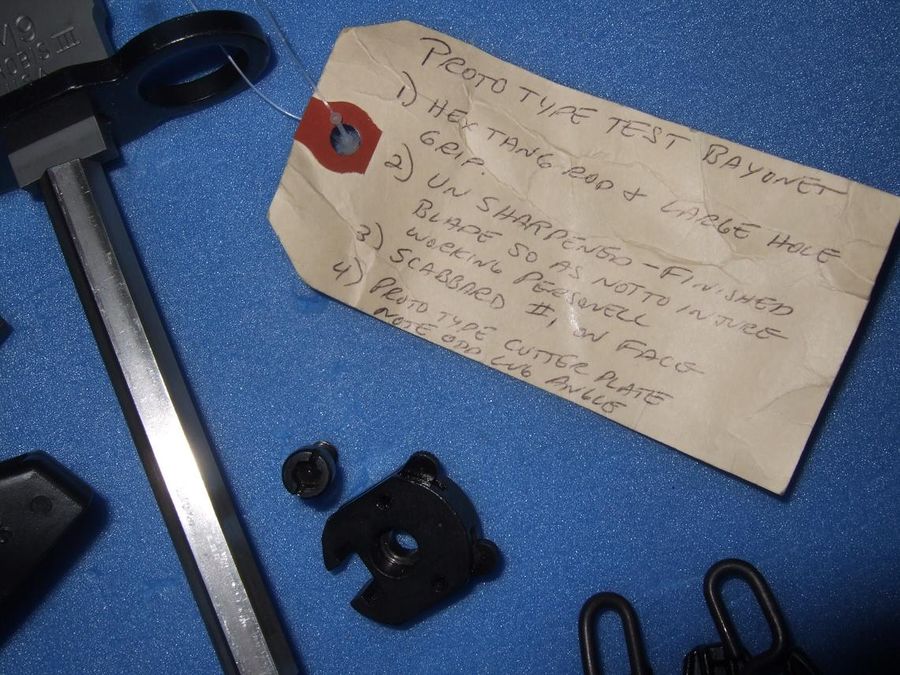 M9
PROTO TYPE TEST BAYONET
1) HEX TANG ROD & LARGE HOLE
GRIP.
2) UN SHARPENED - FINISHED
BLADE SO AS NOT TO INJURE
WORKING PERSONELL
3) SCABBARD #1 ON FACE
4) PROTO TYPE CUTTER PLATE
NOTE ODD LUG ANGLE